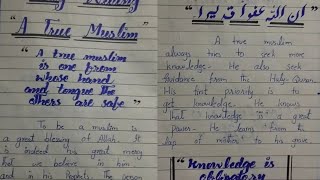 A True Muslim
"A true muslim
is one from
whose hand
and tongue the
others are safe"
To be a muslim is
a great blessing of Allah. It
is indeed his great mercy
that we believe in him
and in his Prophets. The person
A true muslim
always tries to seek more
knowledge. He also seek
Guidance from the Holy Quran.
His first priority is to
get knowledge. He knows
that "knowledge is a great
Power. He learns from the
lap of mother to his grave
"Knowledge is
obligatory